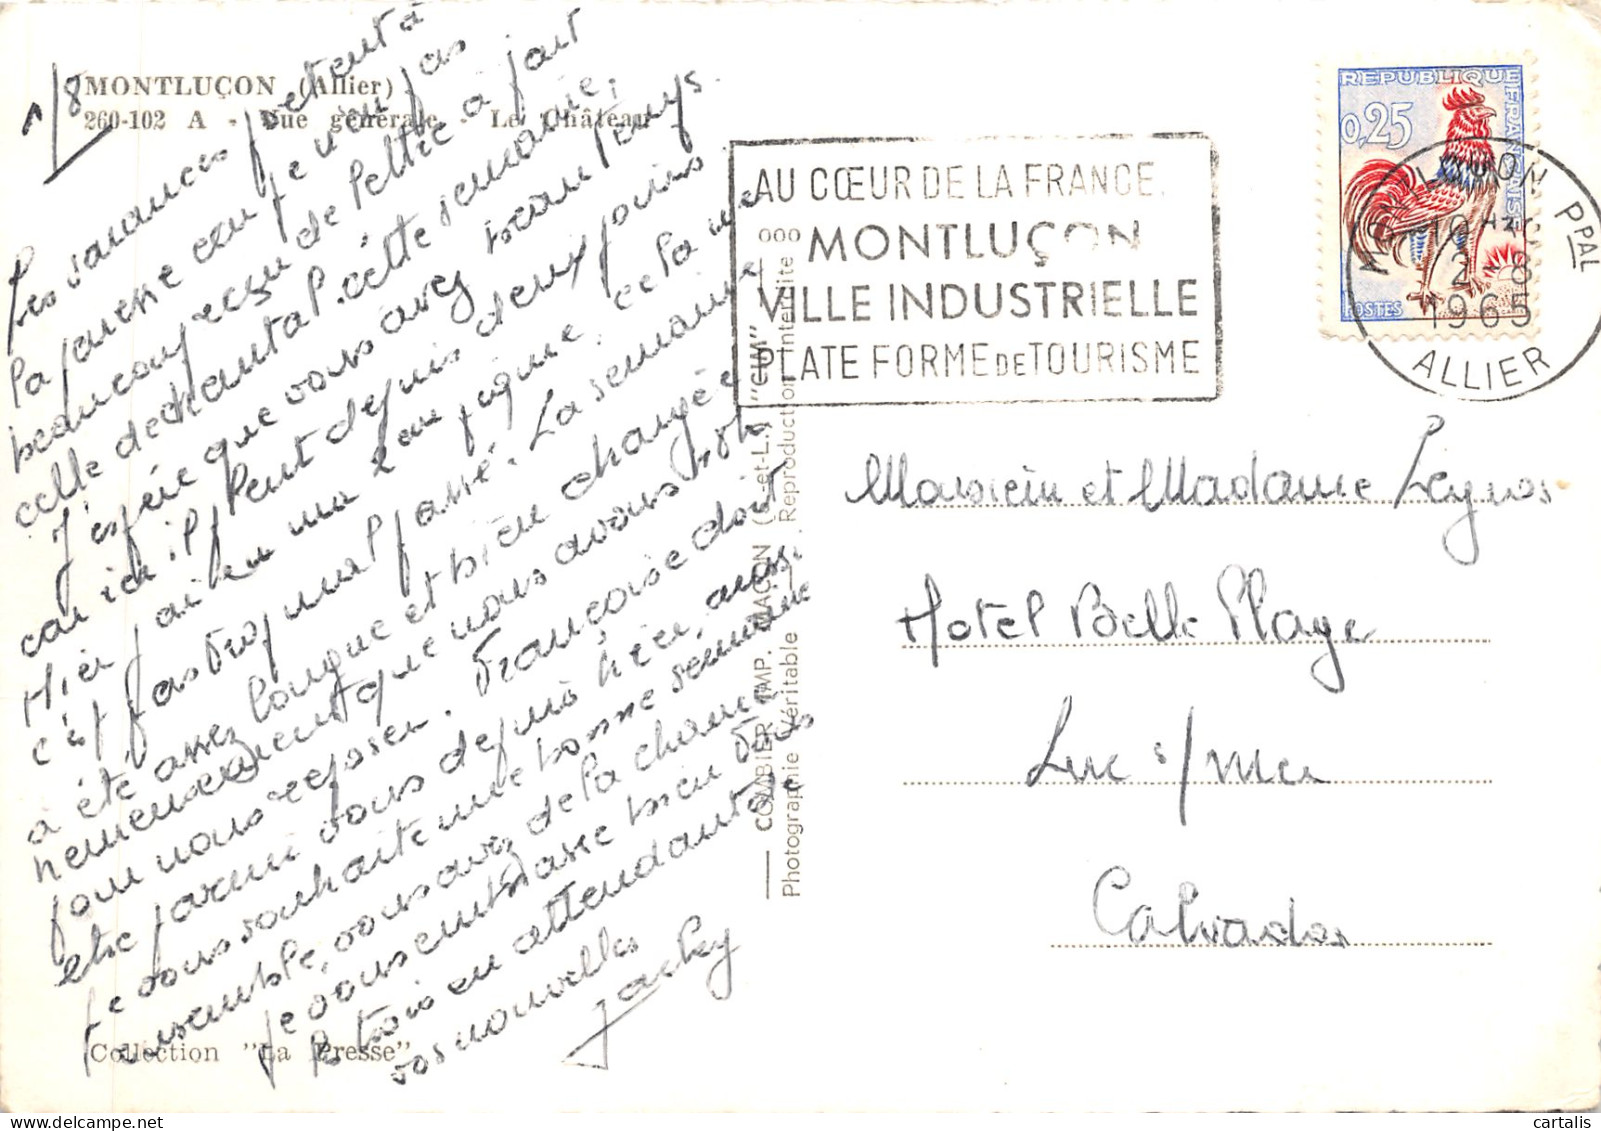 1/8
MONTLUÇON (Allier)
260-102 A - Vue générale - Le Château
Les vacances
la paresse car je n'en pas
beaucoup reçu de Peltre à part
celle de chantal. cette semaine;
J'espère que vous avez beau temps
car ici il pleut depuis deux jours
Hier j'ai eu ma 2ème piqure, ce
c'est pas trop mal passé. La semaine
a été assez longue et bien changée
heureusement que nous avons 48h
pour nous reposer. Françoise doit
être parmi vous depuis hier,
Je vous souhaite une bonne semaine
ensemble, vous avez de la chance
Je vous embrasse bien tous
les trois en attendant de
vos nouvelles
Jacky
Collection "La Presse"
COMBIER IMP. MACON (S.-et-L.) "CIM"
Photographie Véritable Reproduction Interdite
AU CŒUR DE LA FRANCE
MONTLUÇON
VILLE INDUSTRIELLE
PLATE FORME DE TOURISME
REPUBLIQUE FRANCAISE
0,25
POSTES
MONTLUÇON PPAL
2-8
1965
ALLIER
Monsieur et Madame
Hotel Belle Plage
Luc s/mer
Calvados
cartalis